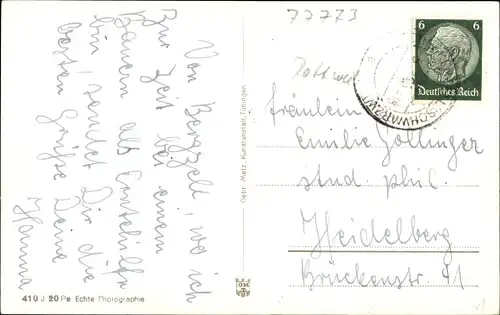 77773
Von Bergzell, wo ich
zur Zeit bei einem
Bauern als Erntehilfe
bin, sendet Dir die
besten Grüße Deine
Hanna
410 J 20 Pe Echte Photographie
Gebr. Metz, Kunstanstalt, Tübingen
6 6
Deutsches Reich
(SCHWARZW
Fräulein
Emilie Zollinger
stud. phil.
Heidelberg
Brückenstr. 41